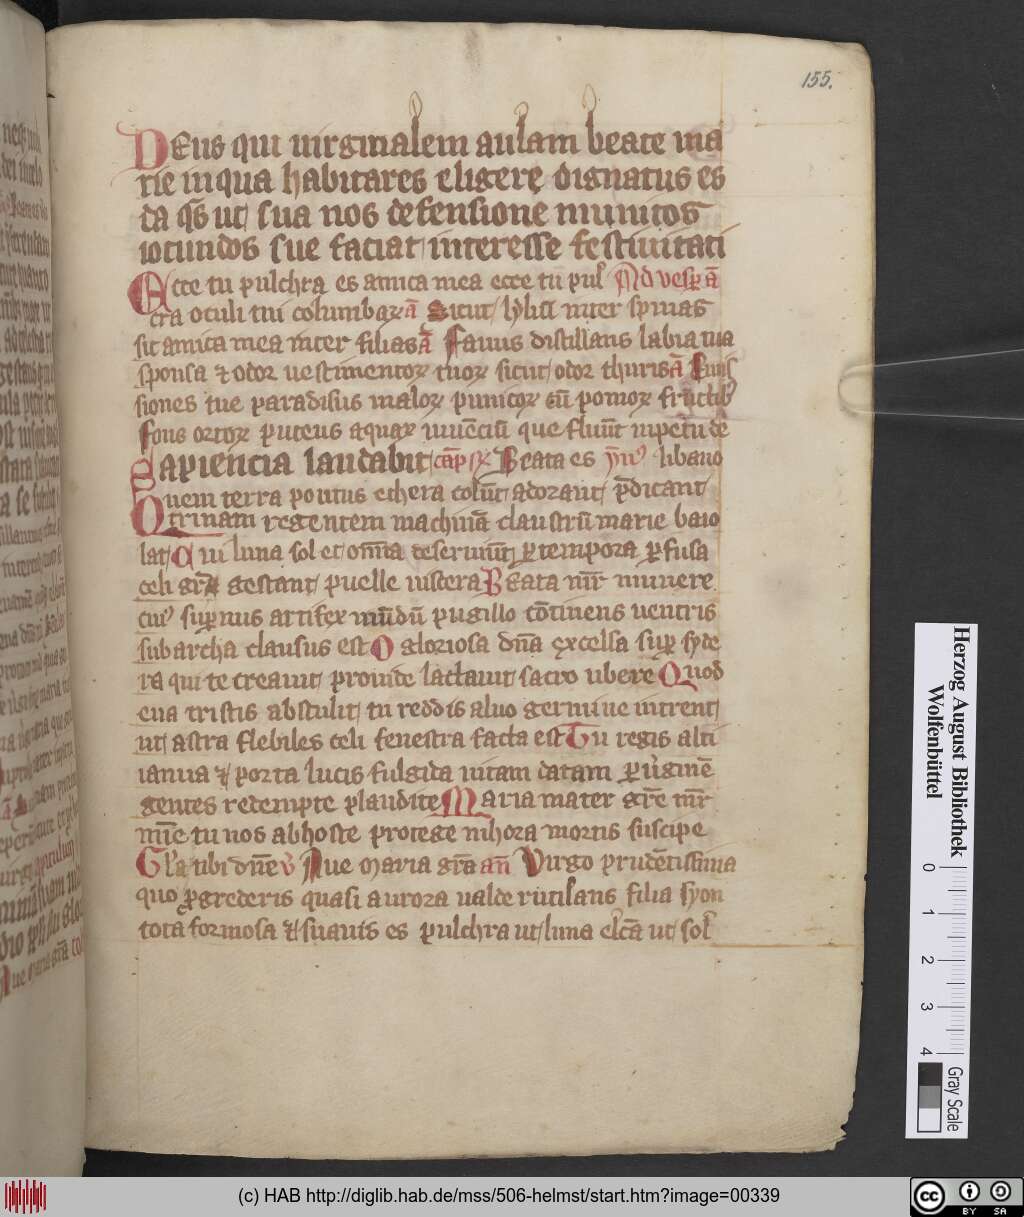 155.
Deus qui uirginalem aulam beate ma
rie in qua habitares eligere dignatus es
da qs ut sua nos defensione munitos
iocundos sue faciat interesse festiuitati
Ecce tu pulchra es amica mea ecce tu pul Ad vesp a
cra oculi tui columbaꝝ a Sicut lyliū inter spinas
sic amica mea inter filias a Fauus distillans labia tua
sponsa ⁊ odor uestimentoꝝ tuoꝝ sicut odor thuris a Emis
siones tue paradisus maloꝝ punicoꝝ cū pomoꝝ fructibꝰ
Fons ortoꝝ puteus aquaꝝ uiuēciū que fluūt
Sapiencia laudabit Beata es libano
Quem terra pontus ethera colūt adorant p̄dicant
trinam regentem machinā claustrū marie baio
lat Cui luna sol et omīa deseruiūt ꝑ tempora ꝑfusa
celi grā gestant puelle uiscera Beata mr̄ munere
cuiꝰ suꝑnus artifex mūdū pugillo cōtinens uentris
sub archa clausus est O gloriosa dn̄a excelsa suꝑ syde
ra qui te creauit prouide lactauit sacro ubere Quod
eua tristis abstulit tu reddis aluo germine intrent
ut astra flebiles celi fenestra facta est Tu regis alti
ianua ⁊ porta lucis fulgida uitam datam ꝑ uirginē
gentes redempte plaudite Maria mater grē mr̄
mīe tu nos ab hoste protege in hora mortis suscipe
Gl̄a tibi dn̄e v̄ Aue maria grā an̄ Virgo prudētissima
quo ꝓgrederis quasi aurora ualde rutilans filia syon
tota formosa ⁊ suauis es pulchra ut luna elc̄a ut sol
Herzog August Bibliothek
Wolfenbüttel
0 1 2 3 4
Gray Scale
(c) HAB http://diglib.hab.de/mss/506-helmst/start.htm?image=00339
cc BY SA